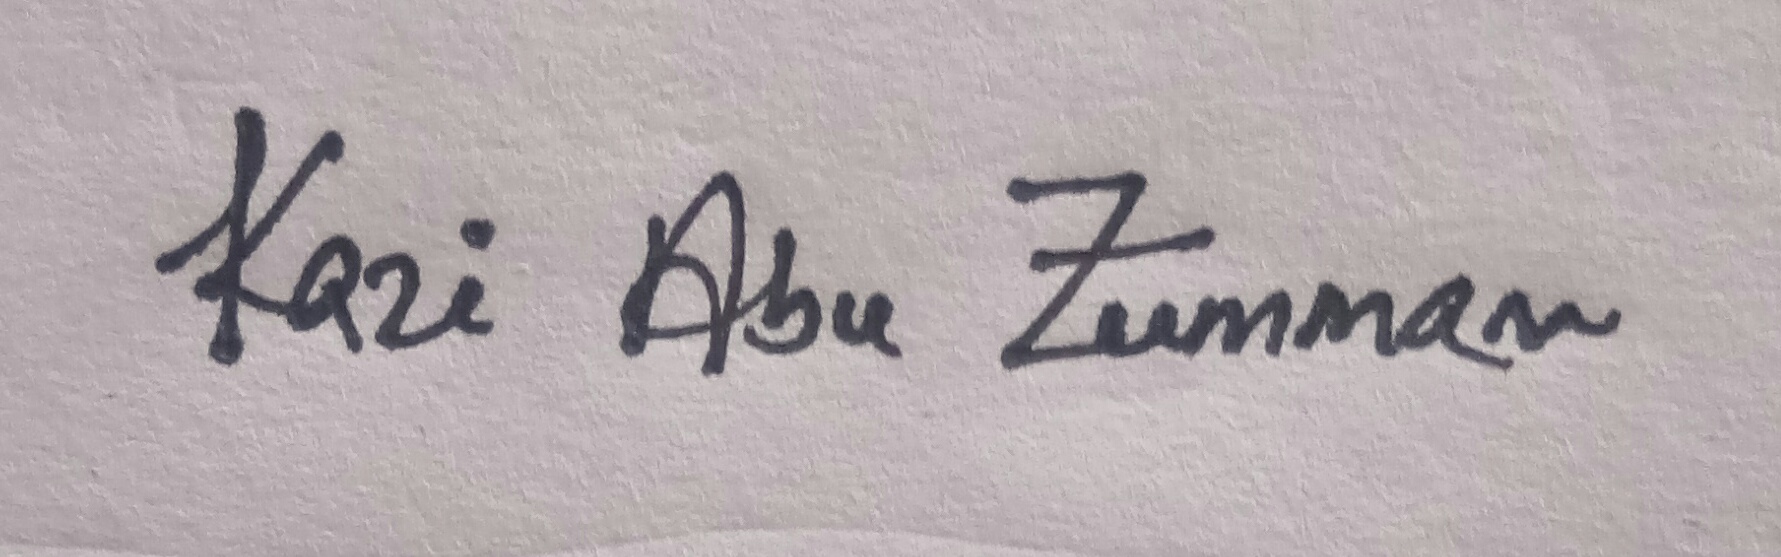 Kazi Abu Zumman